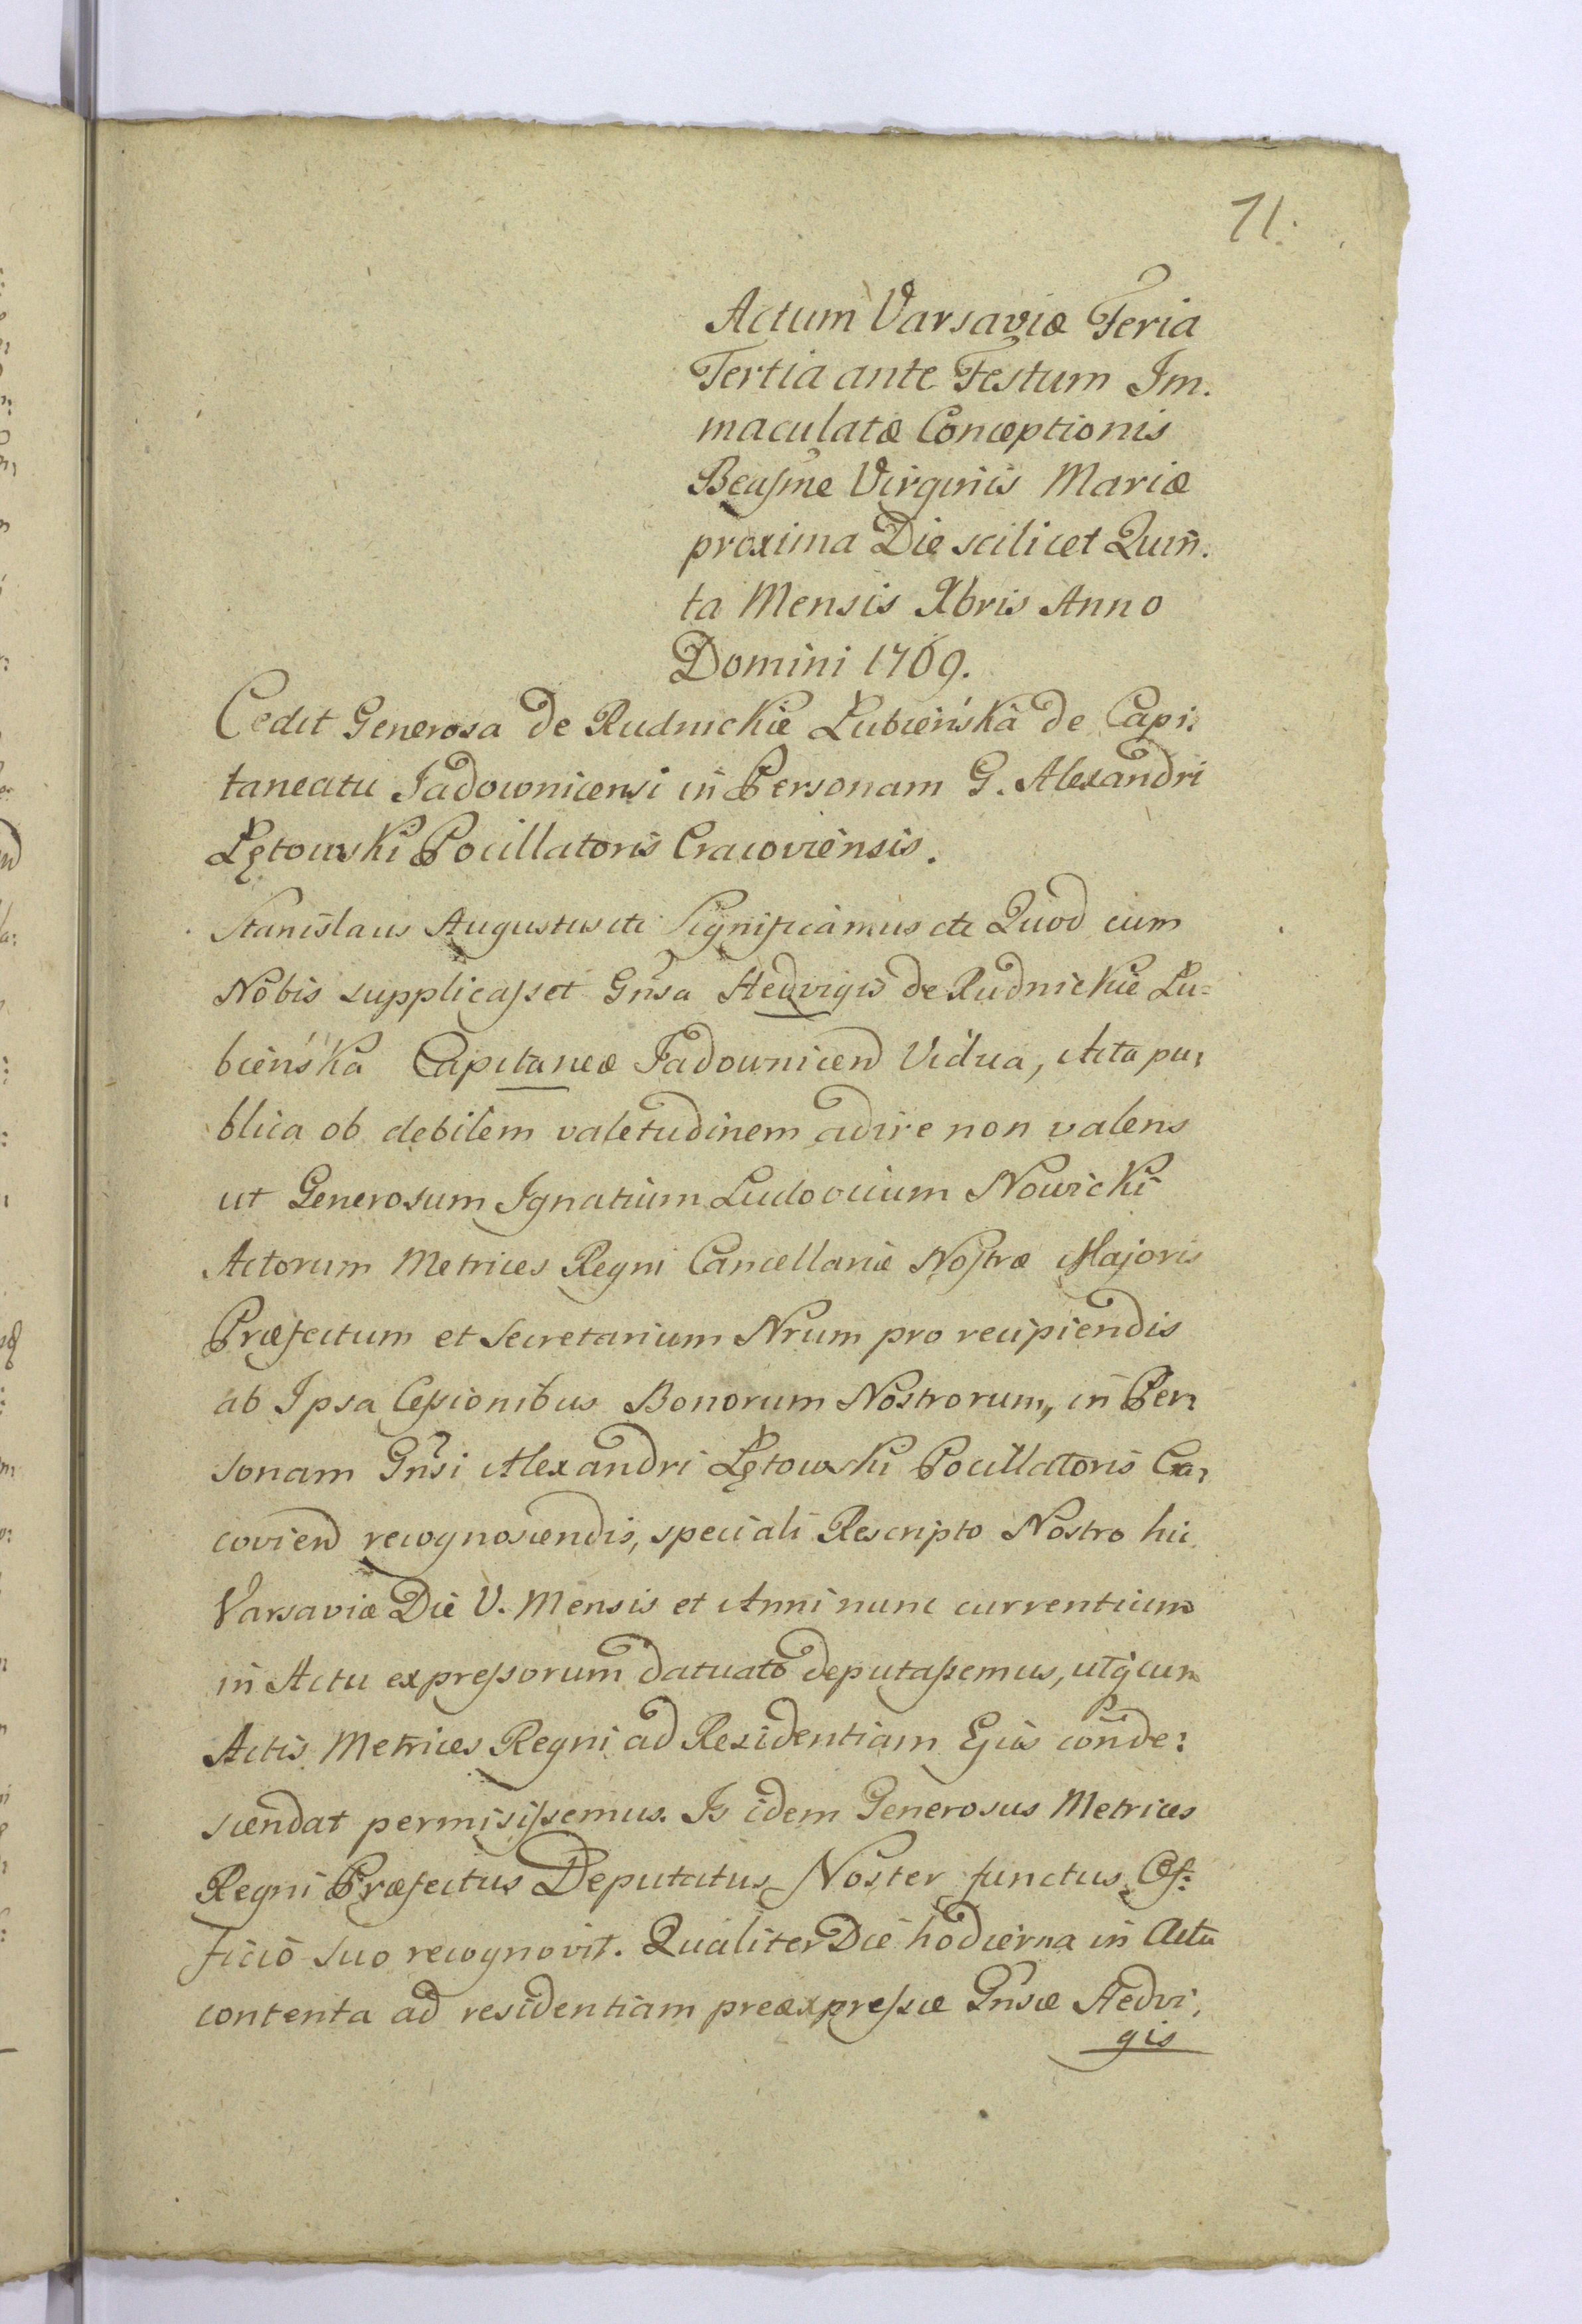 71.
Actum Varsaviæ Feria
Tertia ante Festum Im.
maculatæ Conceptionis
Beasme Virginis Mariæ
proxima Die scilicet Quin.
ta Mensis Xbris Anno
Domini 1769.
Cedit Generosa de Rudnickie Łubieńska de Capi:
taneatu Jadownicensi in Personam G. Alexandri
Łętowski Pocillatoris Cracoviensis.
Stanislaus Augustus etc Significamus etc Quod cum
Nobis supplicasset Gnsa Hedvigis de Rudnickie Łu=
bieńska Capitaneæ Jadownicen Vidua, Acta pu,
blica ob debilem valetudinem adire non valens
ut Generosum Ignatium Ludovicum Nowicki
Actorum Metrices Regni Cancellariæ Nostræ Majoris
Præfectum et Secretarium Nrum pro recipiendis
ab Ipsa Cessionibus Bonorum Nostrorum, in Per,
sonam Gnsi Alexandri Łętowski Pocillatoris Cra,
covien recognoscendis, speciali Rescripto Nostro hic
Varsaviæ Die V. Mensis et Anni nunc currentium
in Actu expressorum datuato deputassemus, utq cum
Actis Metrices Regni ad Residentiam Ejus conde:
scendat permisissemus. Is idem Generosus Metrices
Regni Præfectus Deputatus Noster functus Of:
ficio suo recognovit. Qualiter Die hodierna in Actu
contenta ad residentiam preæxpressæ Gnsæ Hedvi,
gis